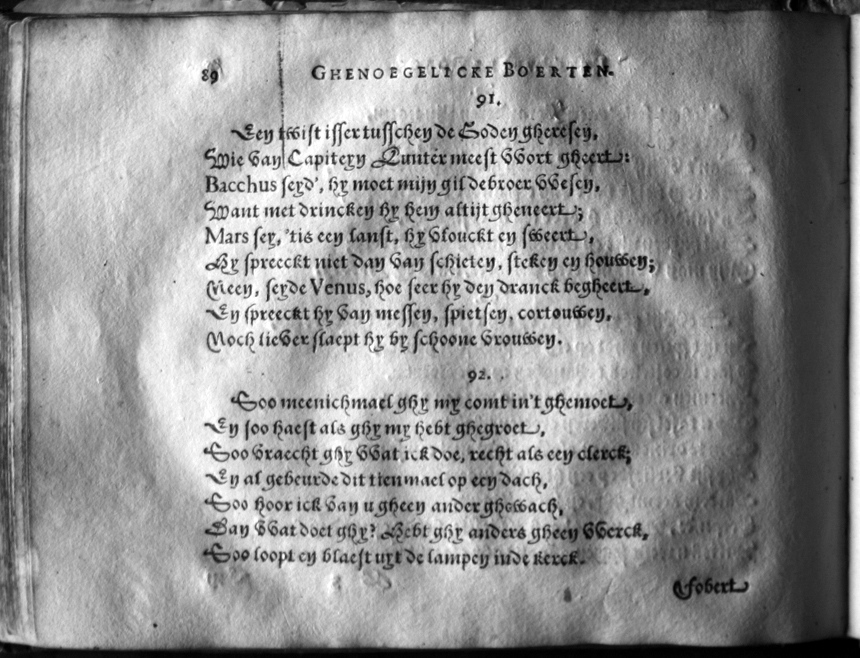 89 GHENOEGELICKE BOERTEN.
91.
Een twist isser tusschen de Goden gheresen,
Wie van Capiteyn Quunter meest wort gheert:
Bacchus seyd', hy moet mijn gildebroer wesen,
Want met drincken hy hem altijt gheneert;
Mars sey, 'tis een lanst, hy vlouckt en sweert,
Hy spreeckt niet dan van schieten, steken en houwen;
Neen, seyde Venus, hoe seer hy den dranck begheert,
En spreeckt hy van messen, spietsen, cortouwen,
Noch liever slaept hy by schoone vrouwen.
92.
Soo meenichmael ghy my comt in't ghemoet,
En soo haest als ghy my hebt ghegroet,
Soo vraecht ghy wat ick doe, recht als een clerck;
En al gebeurde dit tienmael op een dach,
Soo hoor ick van u gheen ander ghewach,
Dan wat doet ghy? Hebt ghy anders gheen werck,
Soo loopt en blaest uyt de lampen inde kerck.